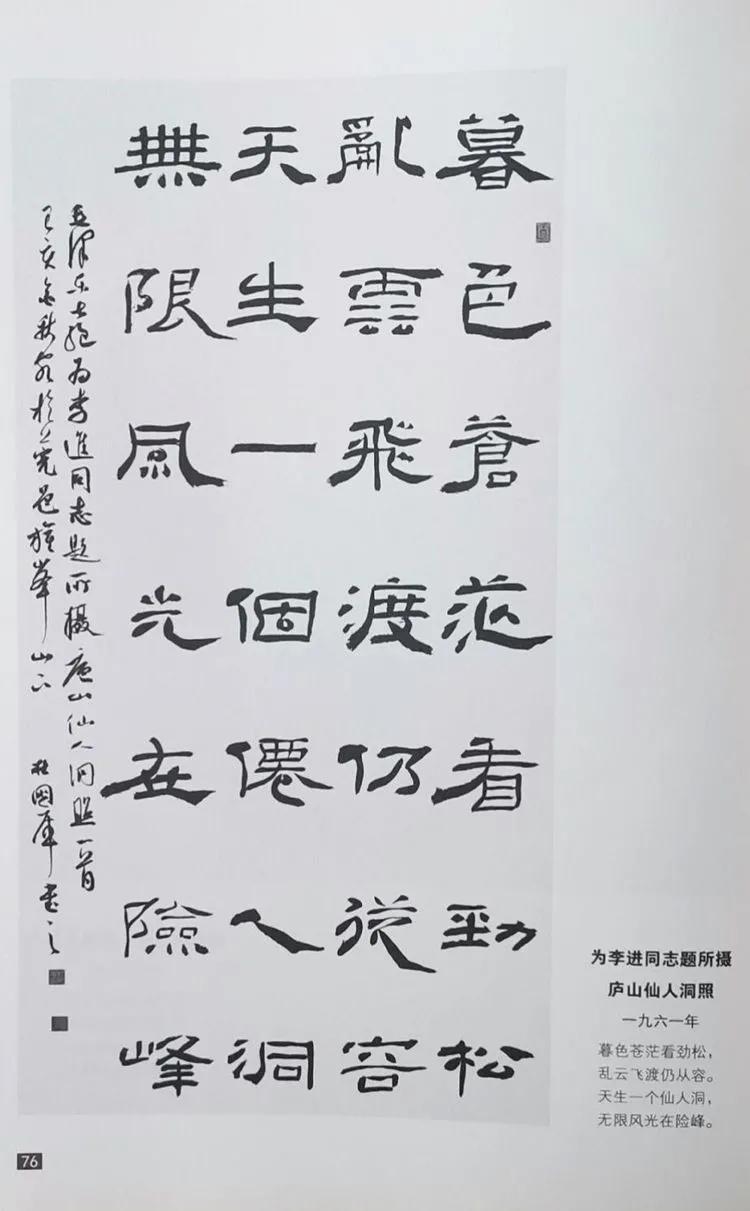 暮色蒼茫看勁松
亂雲飛渡仍從容
天生一個僊人洞
無限風光在險峰
毛澤东七绝为李進同志题所摄庐山仙人洞照一首
己亥金秋於莞邑旗峯山下 杜國庫書之
为李进同志题所摄
庐山仙人洞照
一九六一年
暮色苍茫看劲松，
乱云飞渡仍从容。
天生一个仙人洞，
无限风光在险峰。
76